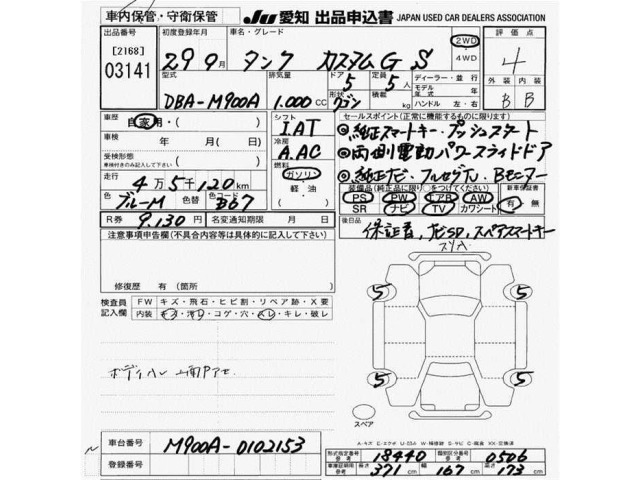 車内保管・守衛保管 JU 愛知 出品申込書 JAPAN USED CAR DEALERS ASSOCIATION
出品番号 初度登録年月 車名・グレード 評価点
[2168] 03141 29 9月 タンク カスタムG S 2WD・4WD 4
型式 排気量 ドア 形状 定員 積載 ディーラー・並行 外装 内装
DBA-M900A 1.000cc 5 ワゴン 5人 kg モデル年式 年 ハンドル 左・右 B B
車歴 自家用・( ) シフト セールスポイント(正常に機能するものに限ります)
I.AT ◎純正スマートキー・プッシュスタート
車検 年 月( 日) 冷房 A.AC ◎両側電動パワースライドドア
受検形態 車検付きのみ記入して下さい ( ) 燃料 ガソリン・軽油・( ) ◎純正ナビ・フルセグTV・Bモニター
走行 4万5千120km 装備品(純正品に限り○をつけてください) 新車保証書
色 ブルーM 色替 色コード B67 PS PW エアB AW SR ナビ TV カワシート 有・無
R券 9.130円 名変通知期限 月 日 後日品
保証書、ナビSD、スペアスマートキー
注意事項申告欄(不具合内容等は具体的に記入して下さい) スリム
修復歴 有(箇所 )
検査員記入欄 FW キズ・飛石・ヒビ割・リペア跡・X要
内装 キズ・汚レ・コゲ・穴・スレ・キレ・破レ
5 5
5 5
スペア
車台番号 M900A-0102153
登録番号
型式指定番号 参考 18440 類別区分番号 参考 0506
車庫証明用 参考 長さ 371cm 幅 167cm 高さ 173cm